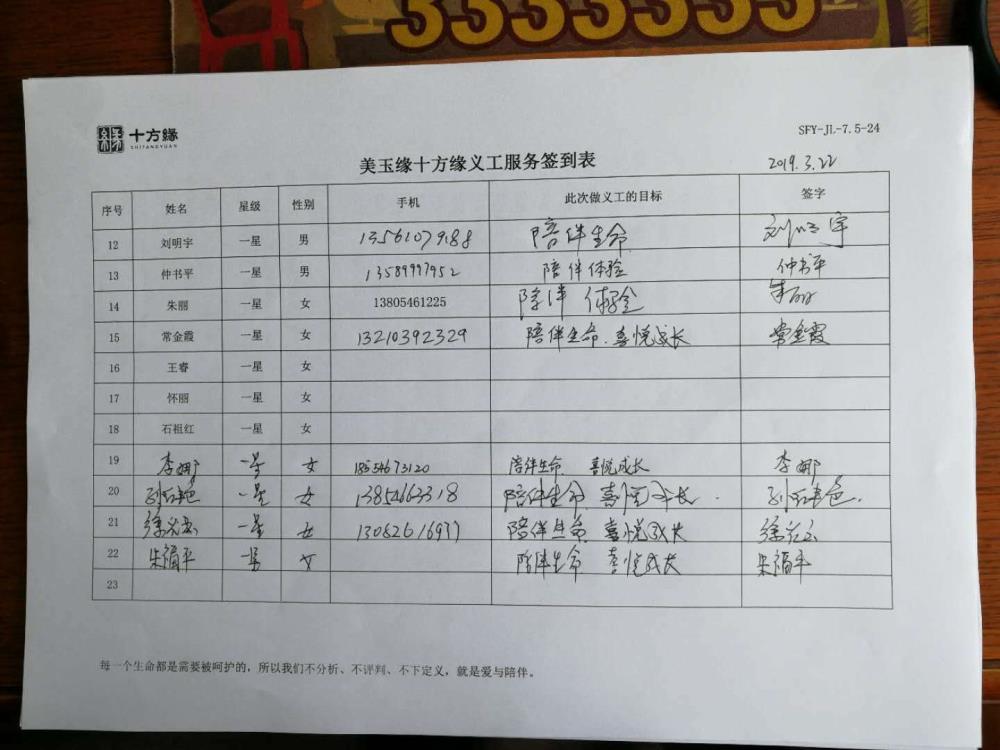 3333333
十方缘
SHIFANGYUAN
SFY-JL-7.5-24
美玉缘十方缘义工服务签到表 2019.3.22
序号 姓名 星级 性别 手机 此次做义工的目标 签字
12 刘明宇 一星 男 13561079188 陪伴生命 刘明宇
13 仲书平 一星 男 13589997952 陪伴体验 仲书平
14 朱丽 一星 女 13805461225 陪伴 体验 朱丽
15 常金霞 一星 女 13210392329 陪伴生命.喜悦成长 常金霞
16 王睿 一星 女
17 怀丽 一星 女
18 石祖红 一星 女
19 李娜 一星 女 18554673120 陪伴生命 喜悦成长 李娜
20 一星 女 13854663318 陪伴生命 喜悦成长.
21 一星 女 陪伴生命 喜悦成长
22 朱福平 一星 女 陪伴生命 喜悦成长 朱福平
23
每一个生命都是需要被呵护的，所以我们不分析、不评判、不下定义，就是爱与陪伴。